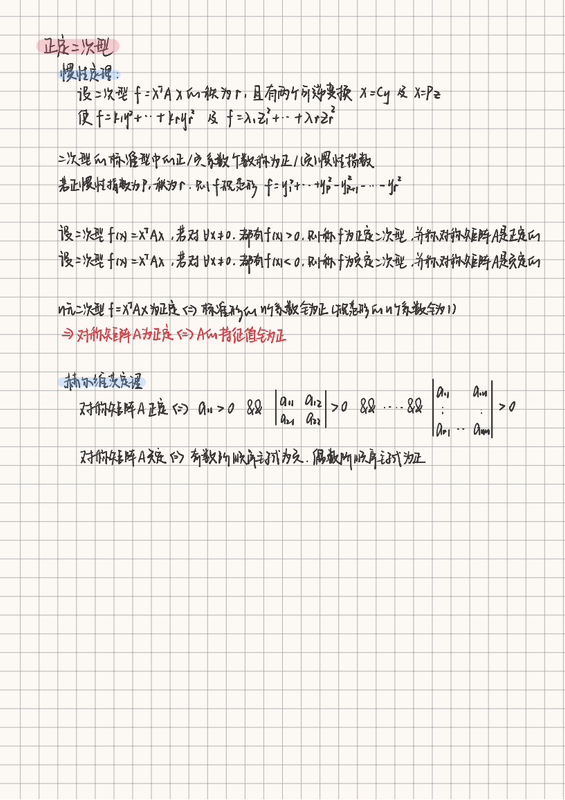 正定二次型
惯性定理:
设二次型 f=xᵀAx 的秩为r, 且有两个可逆变换 x=Cy 及 x=Pz
使 f=k₁y₁²+…+kᵣyᵣ² 及 f=λ₁z₁²+…+λᵣzᵣ²
二次型的标准型中的正/负系数个数称为正/(负)惯性指数
若正惯性指数为p, 秩为r, 则f规范形 f=y₁²+…+yₚ²-yₚ₊₁²-…-yᵣ²
设二次型 f(x)=xᵀAx, 若对∀x≠0, 都有f(x)>0, 则称f为正定二次型, 并称对称矩阵A是正定的
设二次型 f(x)=xᵀAx, 若对∀x≠0, 都有f(x)<0, 则称f为负定二次型, 并称对称矩阵A是负定的
n元二次型 f=xᵀAx为正定 <=> 标准形的n个系数全为正 (规范形的n个系数全为1)
=> 对称矩阵A为正定 <=> A的特征值全为正
赫尔维茨定理
对称矩阵A正定 <=> a₁₁>0 && |a₁₁ a₁₂; a₂₁ a₂₂|>0 && … && |a₁₁ a₁ₙ; ⋮ ⋮; aₙ₁ … aₙₙ|>0
对称矩阵A负定 <=> 奇数阶顺序主式为负, 偶数阶顺序主式为正